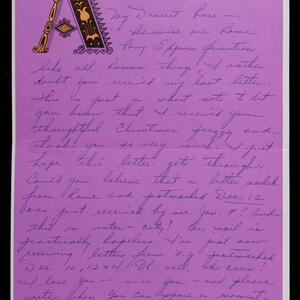 A
My Dearest Rose —
Because our Rome
Pony Express function
like all Roman things I rather
doubt you received my last letter.
This is just a short note to let
you know that I received your
thoughtful Christmas
thank you so very much. I just
hope this letter gets through.
Could you believe that a letter mailed
from Rome and postmarked Dec. 12
was just received by me Jan. 9? And
this is inter-city! Our mail is
practically hopeless. I'm just now
receiving letters from N.Y. postmarked
Dec. 10, 12 & 4. Oh, well, who cares?
I love you — miss you — and please
write when you can spare a moment